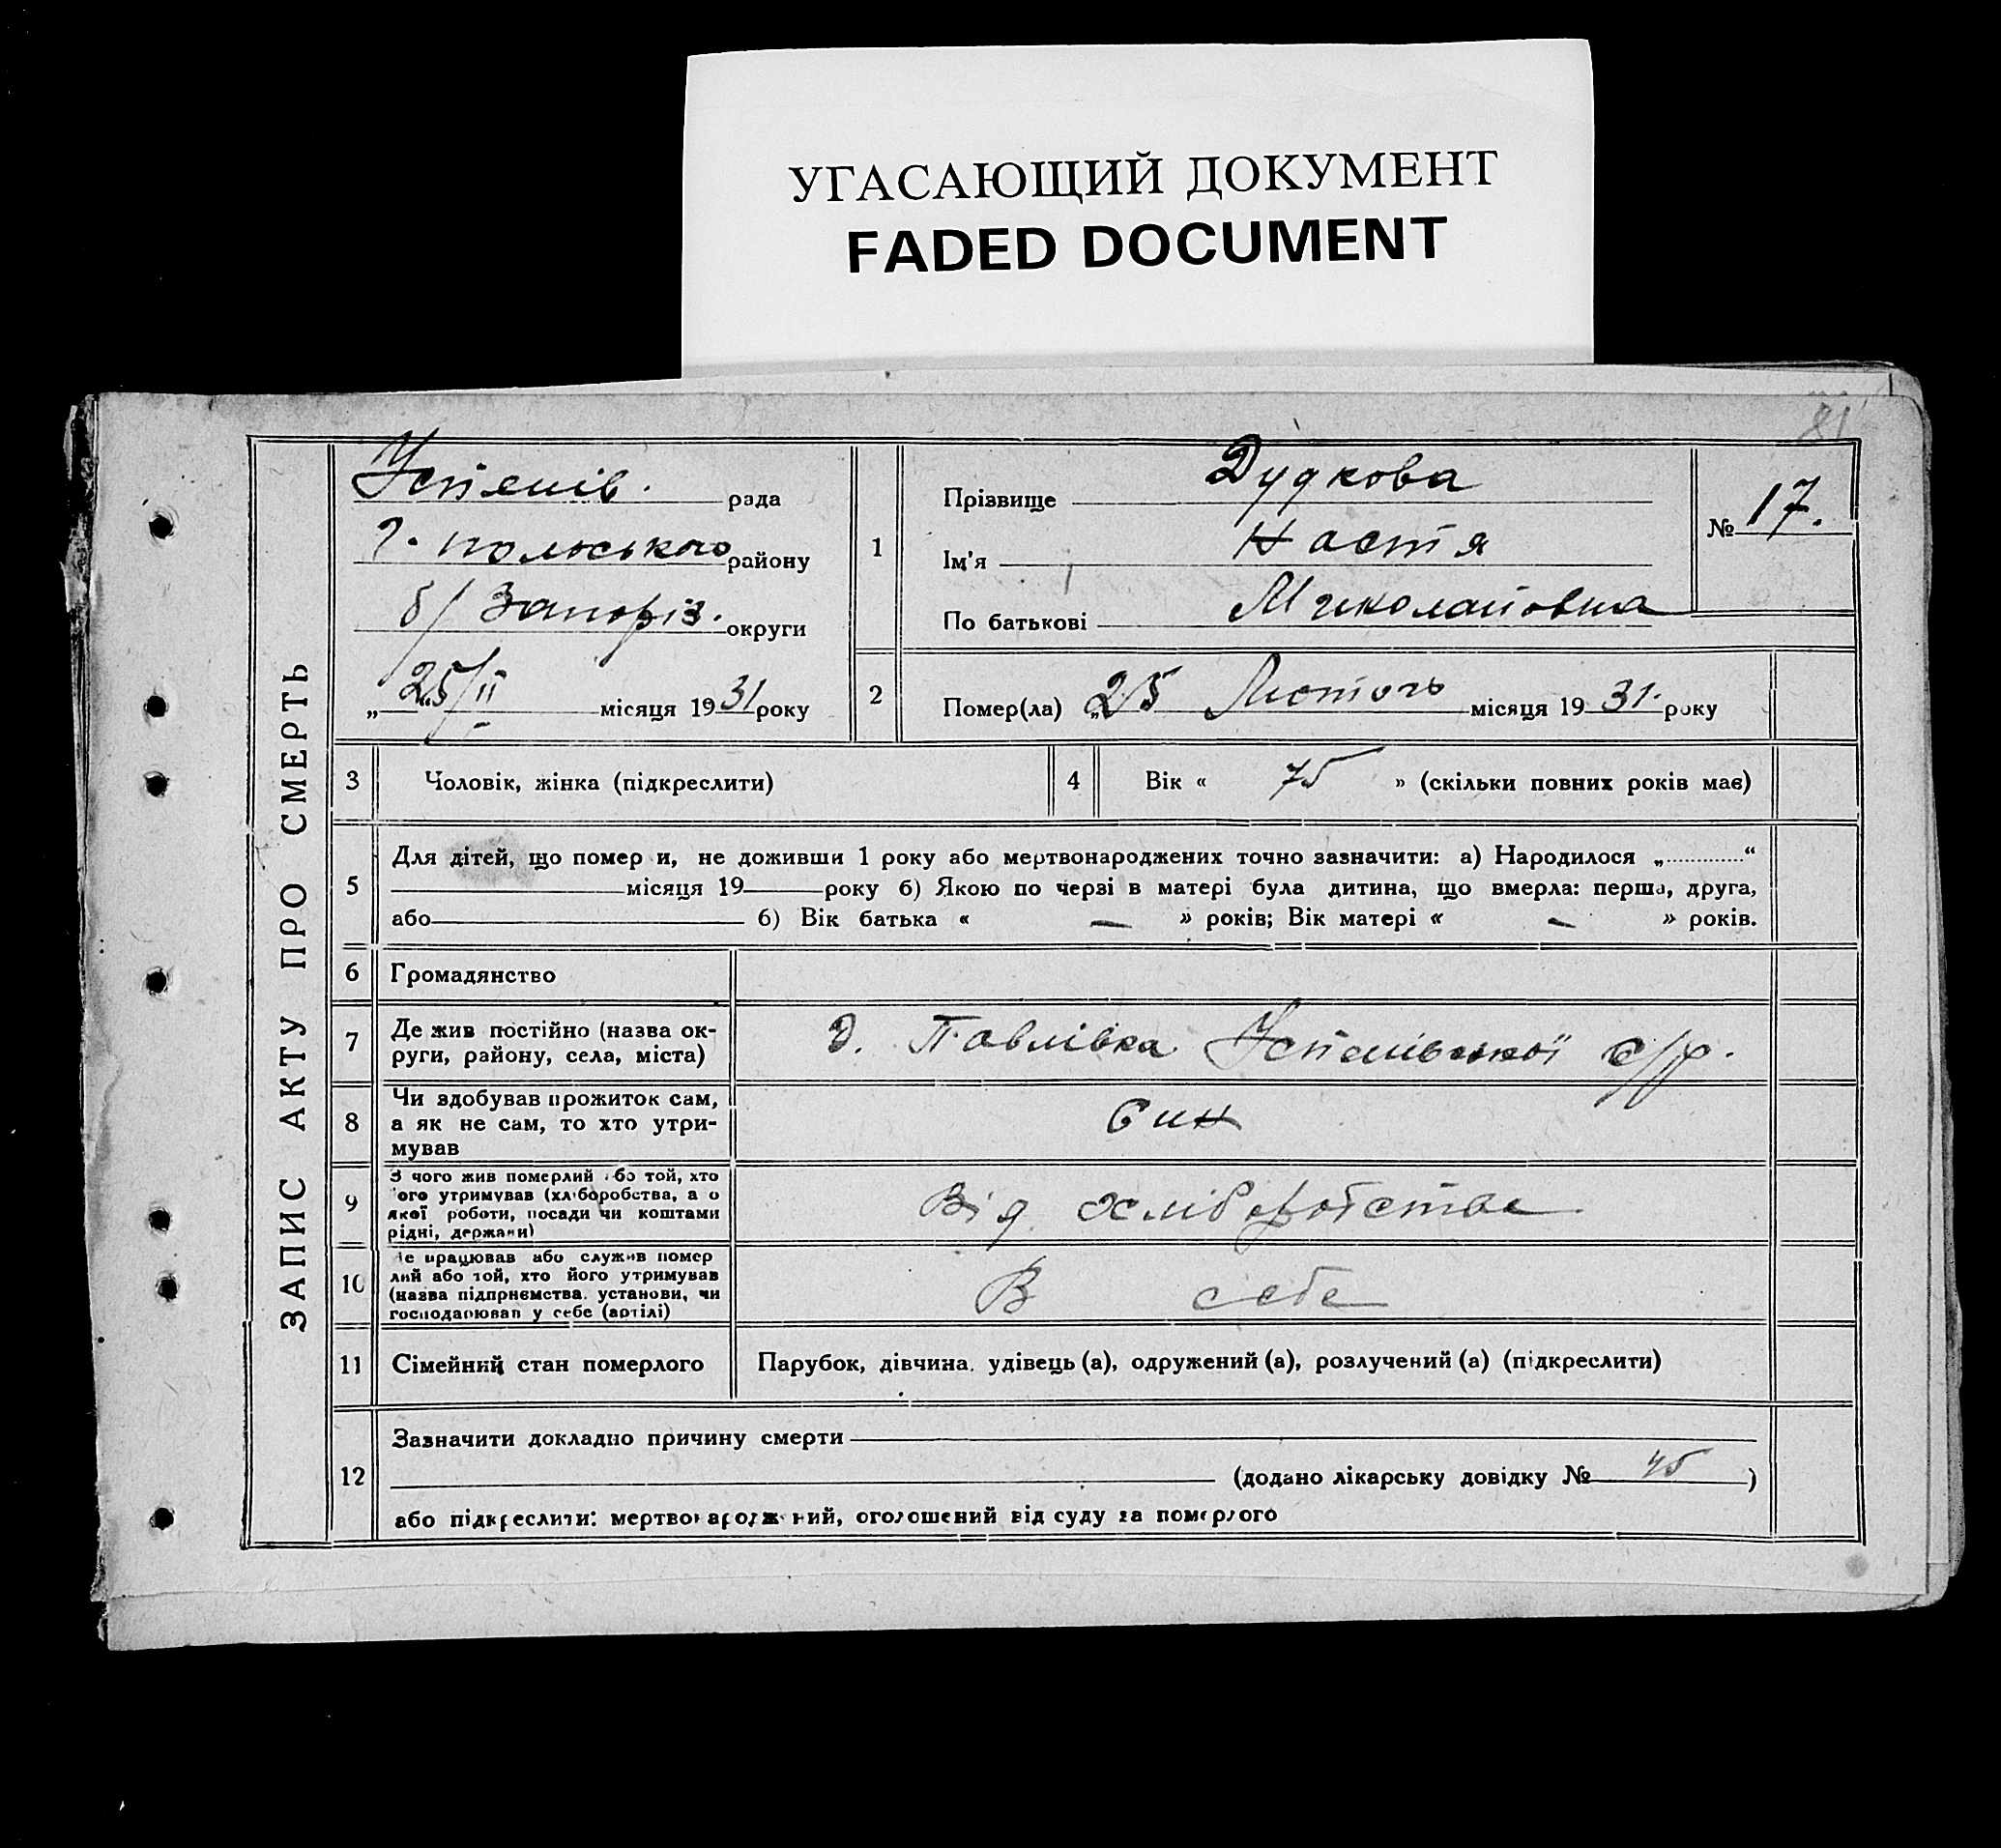 УГАСАЮЩИЙ ДОКУМЕНТ
FADED DOCUMENT
81
ЗАПИС АКТУ ПРО СМЕРТЬ
Успенів. рада
Г. польського району
б/ Запоріз. округи
„25/II місяця 1931 року
1
Прізвище Дудкова
Ім'я Настя
По батькові Миколайовна
№ 17.
2
Помер(ла) „25 Лютого місяця 1931. року
3 Чоловік, жінка (підкреслити)
4 Вік « 75 » (скільки повних років має)
5 Для дітей, що помер и, не доживши 1 року або мертвонароджених точно зазначити: а) Народилося „............“
місяця 19 року б) Якою по черзі в матері була дитина, що вмерла: перша, друга,
або б) Вік батька « — » років; Вік матері « — » років.
6 Громадянство
7 Де жив постійно (назва ок-
руги, району, села, міста)
д. Павлівка Успенівської с/р.
8 Чи здобував прожиток сам,
а як не сам, то хто утри-
мував
Син
9 З чого жив померлий або той, хто
його утримував (хліборобства, а о
якої роботи, посади чи коштами
рідні, держави)
Від хліборобства
10 Де працював або служив помер
лий або той, хто його утримував
(назва підприємства, установи, чи
господарював у себе (артілі)
В себе
11 Сімейний стан померлого
Парубок, дівчина, удівець (а), одружений (а), розлучений (а) (підкреслити)
12 Зазначити докладно причину смерти
(додано лікарську довідку № 45 )
або підкреслити: мертвонароджений, оголошений від суду за померлого